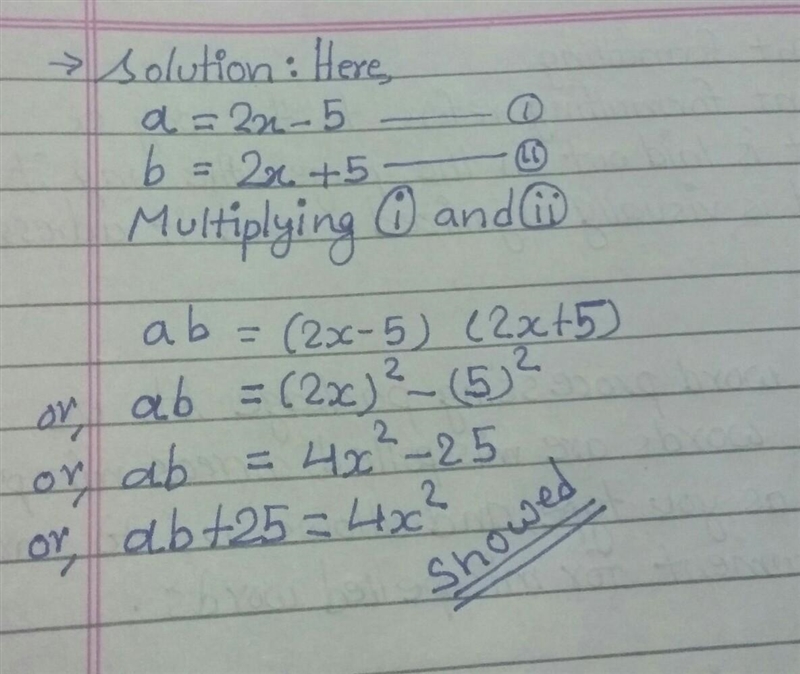 → Solution: Here,
a = 2x - 5 —— (i)
b = 2x + 5 —— (ii)
Multiplying (i) and (ii)
ab = (2x-5) (2x+5)
or, ab = (2x)² - (5)²
or, ab = 4x² - 25
or, ab + 25 = 4x²
Showed